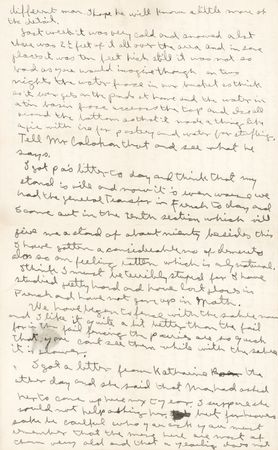 different man I hope he will know a little more of
the detail.
Last week it was very cold and snowed a lot
there was 2½ feet of it all over the area and in some
places it was ten feet high still it was not so
bad as you would imagine though on two
nights the water froze in my bucket so thick
as it was going on the punds it have and the water in
a tin basin froze around the top and
round the bottom so that it made a thing like
a pie with ice for pastry and water for stuffing.
Tell Mr Calahan that and see what he
says.
I got a letter to day and think that my
stand is vile and now it is even worse we
had the general Transfer in French to day and
I came out in the tenth section which will
give me a stand of about ninety besides this
I have gotten a considerable no of demerits
also so am feeling rotten which is only natural.
I think I must be terribly stupid for I have
studied pretty hard and have lost places in
French and have not gone up in Math.
We have begun to fence with the sabre now
and I like it quite a lot better than the foil
for in foil fencing the parries are so quick
that you cant see them while with the sabre
it is slower.
I got a letter from Katharine the
other day and she said that Ma had asked
her to come up here my 1st year. I suppose she
could not help asking her but for heavens
sake be careful who you ask you must
remember that the men here are most of
them very old and that a yearling does not